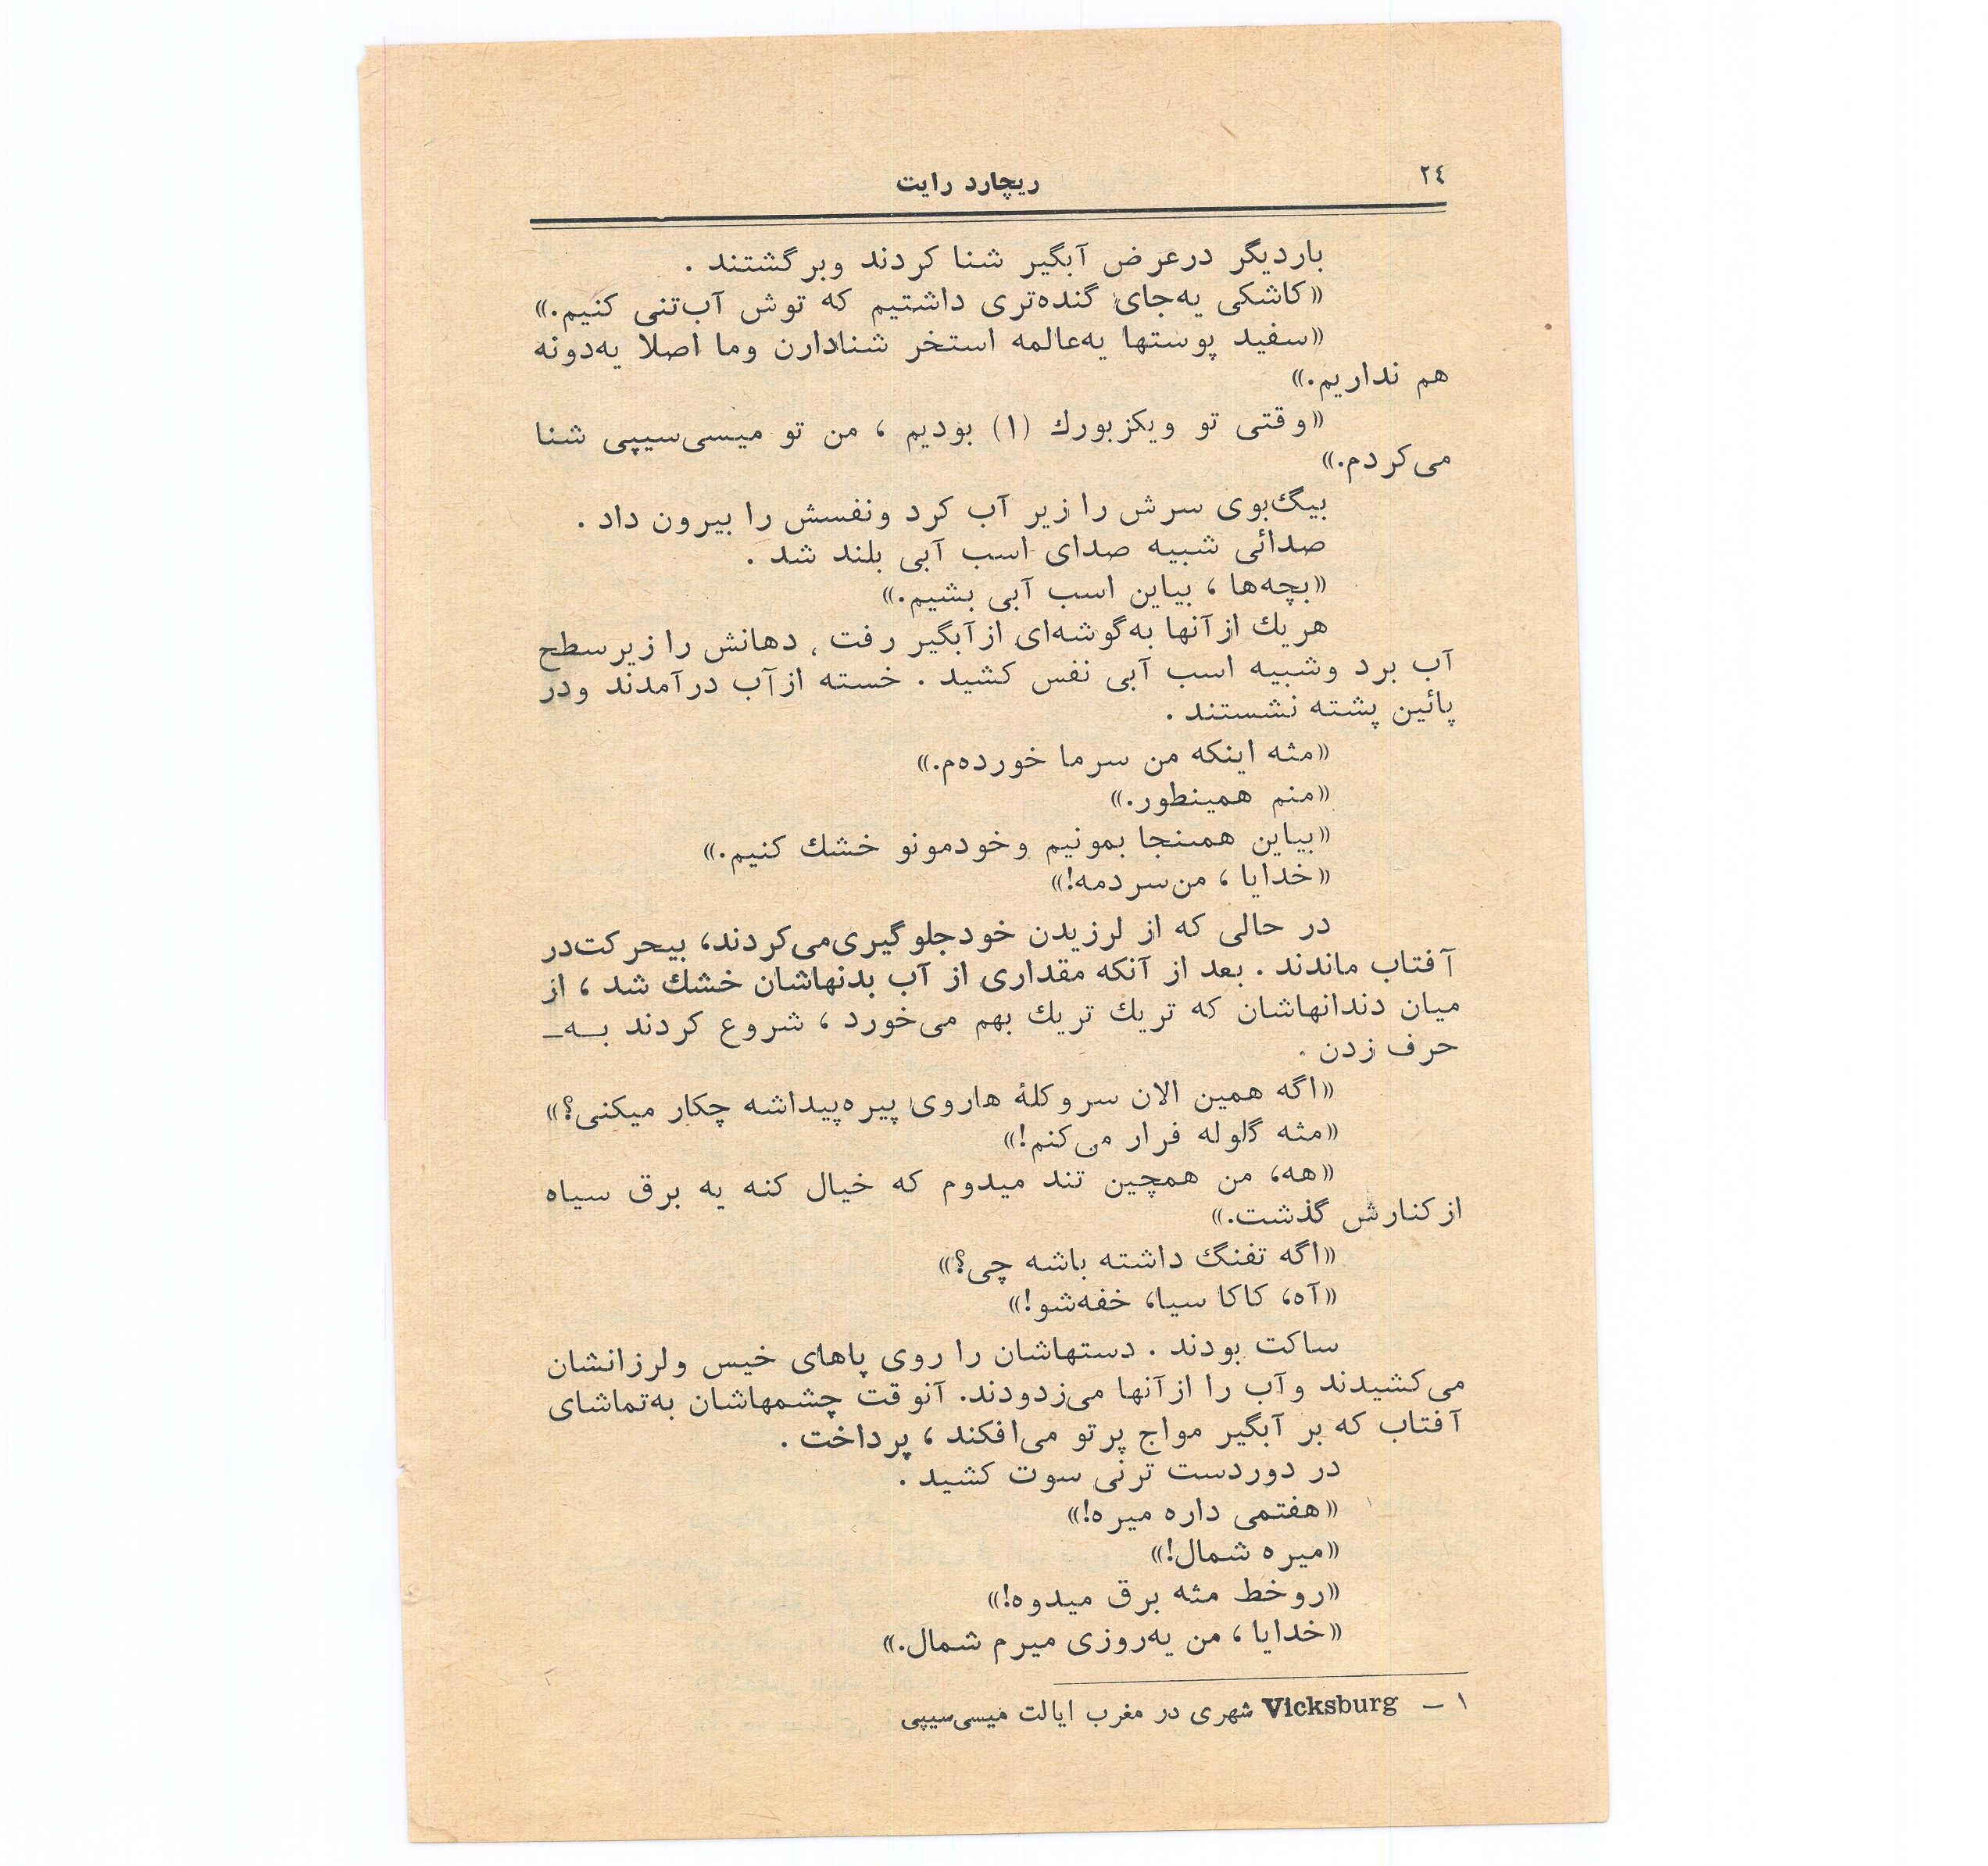 ۲٤
ریچارد رایت
باردیگر درعرض آبگیر شنا کردند وبرگشتند .
«کاشکی یه‌جای گنده‌تری داشتیم که توش آب‌تنی کنیم.»
«سفید پوستها یه‌عالمه استخر شنادارن وما اصلا یه‌دونه
هم نداریم.»
«وقتی تو ویکزبورك (۱) بودیم ، من تو میسی‌سیپی شنا
می‌کردم.»
بیگ‌بوی سرش را زیر آب کرد ونفسش را بیرون داد .
صدائی شبیه صدای اسب آبی بلند شد .
«بچه‌ها ، بیاین اسب آبی بشیم.»
هریك ازآنها به‌گوشه‌ای ازآبگیر رفت ، دهانش را زیرسطح
آب برد وشبیه اسب آبی نفس کشید . خسته ازآب درآمدند ودر
پائین پشته نشستند .
«مثه اینکه من سرما خورده‌م.»
«منم همینطور.»
«بیاین همینجا بمونیم وخودمونو خشك کنیم.»
«خدایا ، من‌سردمه!»
در حالی که از لرزیدن خودجلوگیری‌می‌کردند، بیحرکت‌در
آفتاب ماندند . بعد از آنکه مقداری از آب بدنهاشان خشك شد ، از
میان دندانهاشان که تریك تریك بهم می‌خورد ، شروع کردند بـه‍ـ
حرف زدن .
«اگه همین الان سروکلهٔ هاروی پیره‌پیداشه چکار میکنی؟»
«مثه گلوله فرار می‌کنم!»
«هه، من همچین تند میدوم که خیال کنه یه برق سیاه
ازکنارش گذشت.»
«اگه تفنگ داشته باشه چی؟»
«آه، کاکا سیا، خفه‌شو!»
ساکت بودند . دستهاشان را روی پاهای خیس ولرزانشان
می‌کشیدند وآب را ازآنها می‌زدودند. آنوقت چشمهاشان به‌تماشای
آفتاب که بر آبگیر مواج پرتو می‌افکند ، پرداخت .
در دوردست ترنی سوت کشید .
«هفتمی داره میره!»
«میره شمال!»
«روخط مثه برق میدوه!»
«خدایا ، من یه‌روزی میرم شمال.»
۱ – Vicksburg شهری در مغرب ایالت میسی‌سیپی